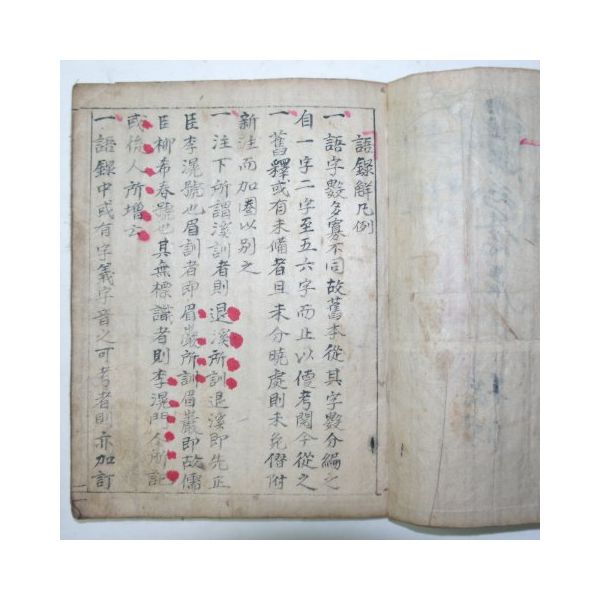 語錄解凡例
一 語字數多寡不同故舊本從其字數分編之
自一字二字至五六字而止以便考閱今從之
一 舊釋或有未備者且未分曉處則未免僭附
新註而加圈以別之
一 注下所謂溪訓者則退溪所訓退溪即先正
臣李滉號也眉訓者即眉巖所訓眉巖即故儒
臣柳希春號也其無標識者則李滉門人所記
或後人所增云
一 語錄中或有字義字音之可考者則亦加訂